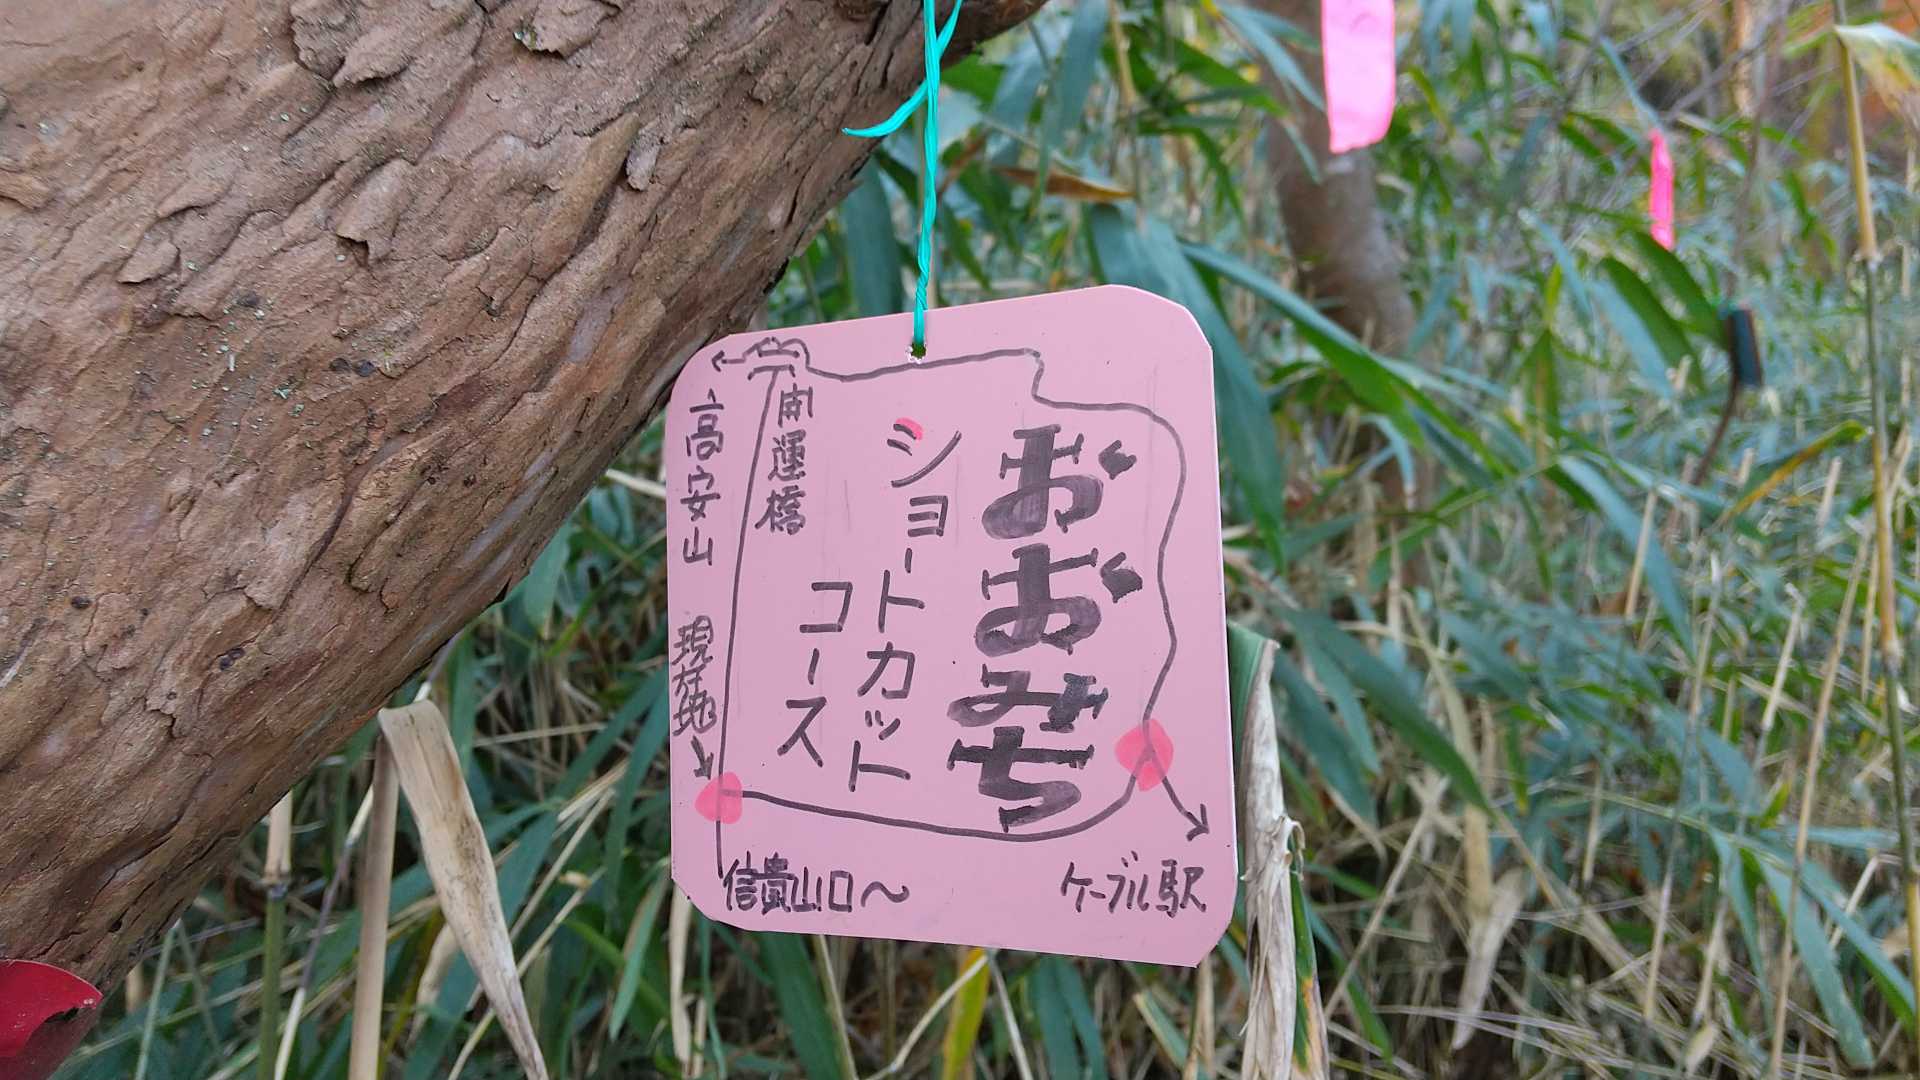 おおみち
ショートカット
コース
開運橋
高安山
現在地
信貴山口〜
ケーブル駅